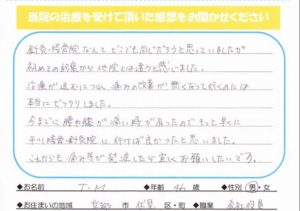 当院の治療を受けて頂いた感想をお聞かせください
針灸・接骨院なんてどこも同じだろうと思っていましたが
初めての効果から他院とは違うと感じました。
治療が進むにつれ、痛みの改善が良くなって行くのには
本当にビックリしました。
今までに腰や膝が痛い時が有ったのでもっと早くに
平川接骨鍼灸院に行けば良かったと思いました。
これからも痛み等が発症したら宜しくお願いしたいです。
◆お名前 T.M ◆年齢 46 歳 ◆性別 男・女
◆お住まいの地域 京都 市 伏見 区・町 ◆職業 会社役員